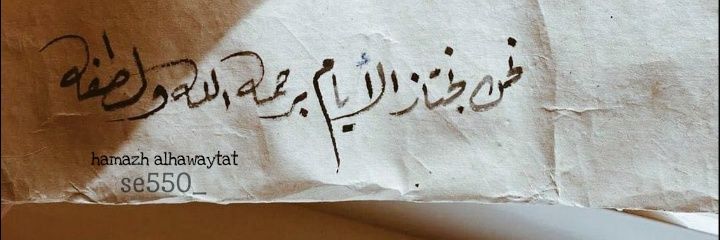 نحن نجتاز الأيام برحمة الله ولطفه
hamazh alhawaytat
se550_